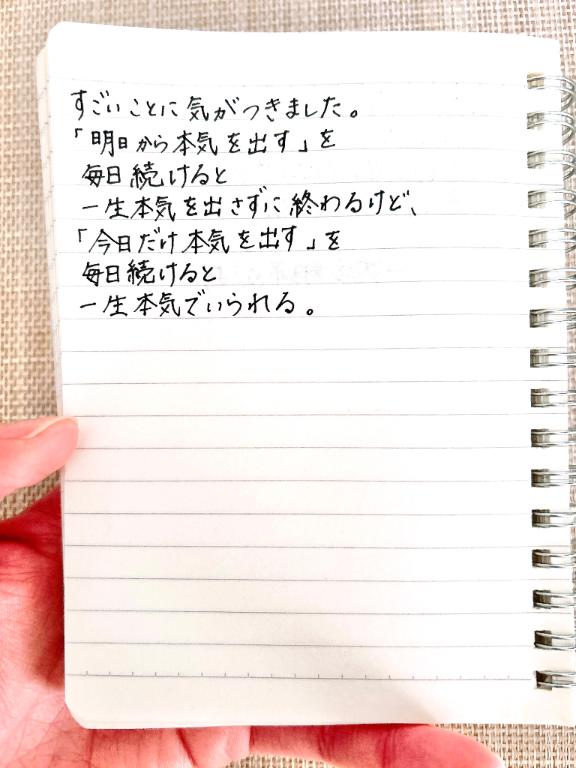 すごいことに気がつきました。
「明日から本気を出す」を
毎日続けると
一生本気を出さずに終わるけど、
「今日だけ本気を出す」を
毎日続けると
一生本気でいられる。